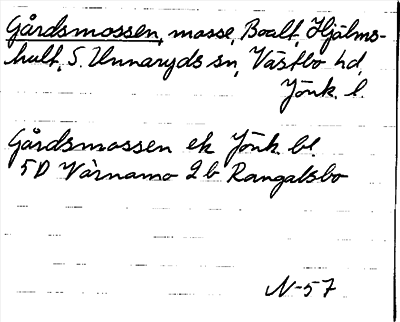 Gårdsmossen, mosse, Boalt, Hjälms-
hult, S. Unnaryds sn, Västbo hd,
Jönk. l.
Gårdsmossen ek Jönk. bl.
5D Värnamo 2b Rangalsbo
N-57